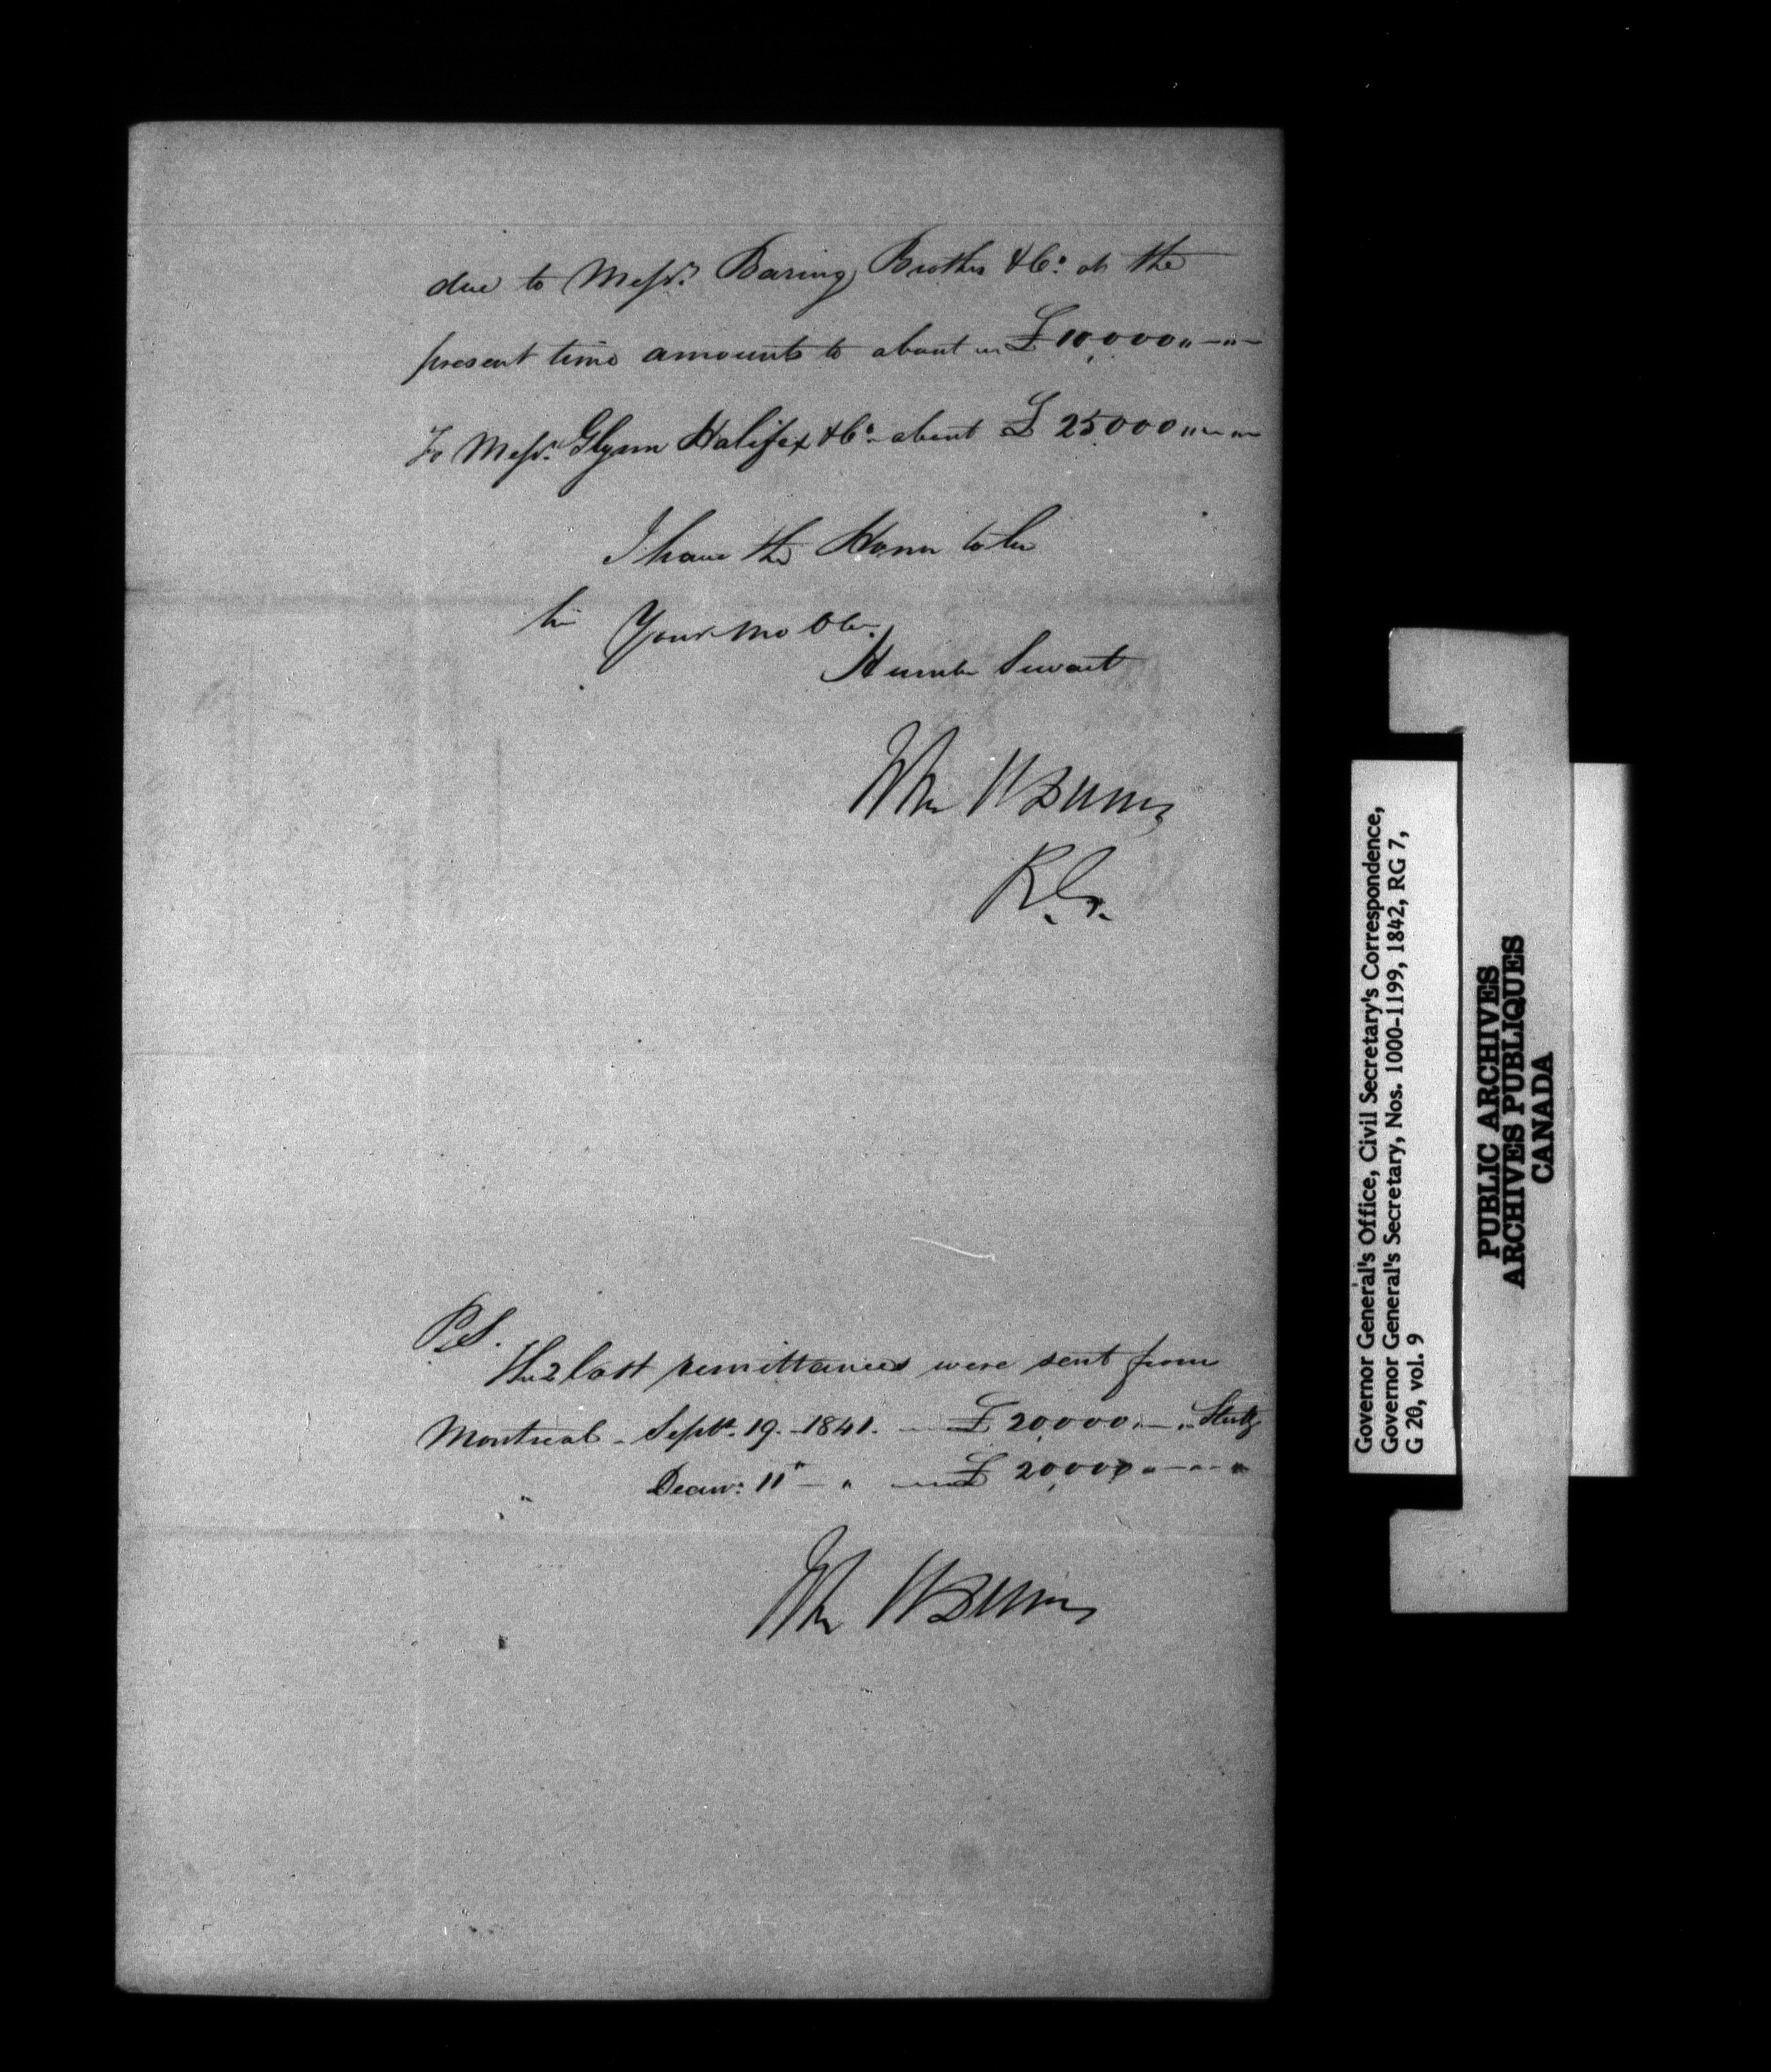 due to Messrs. Baring Brothers & Co. at the
present time amounts to about £10,000 " – " –
To Messrs. Glynn Halifax & Co. about £25,000
I have the Honor to be
Sir Your mo Obt.
Humble Servant
John H Dunn
R.G.
P.S.
The 2 last remittances were sent from
Montreal - Septr. 19. - 1841. £20,000 " – " Sterlg
" Decemr. 11" – " £20,000 " – " – "
John H Dunn
Governor General's Office, Civil Secretary's Correspondence,
Governor General's Secretary, Nos. 1000-1199, 1842, RG 7,
G 20, vol. 9
PUBLIC ARCHIVES
ARCHIVES PUBLIQUES
CANADA